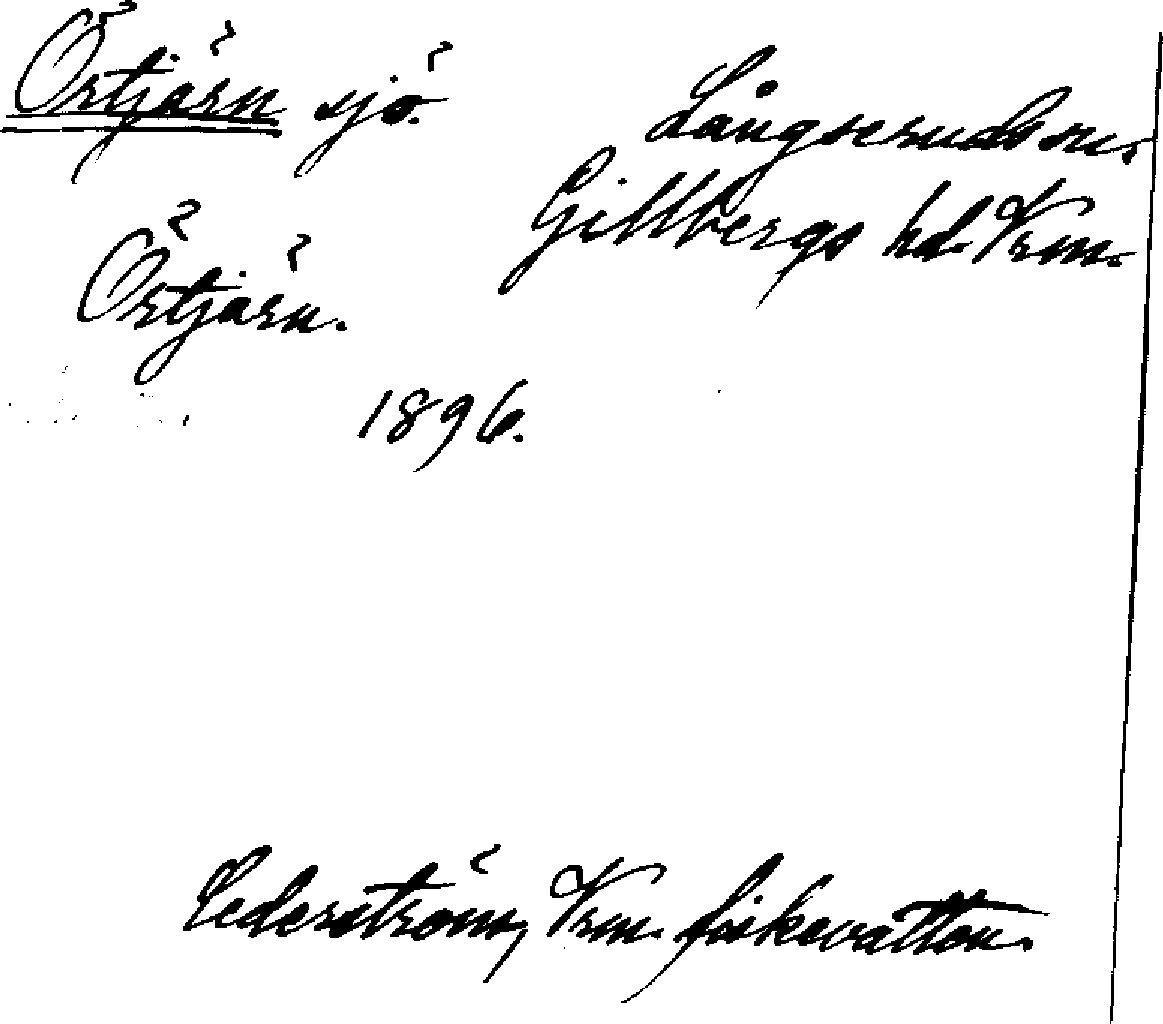 Örtjärn sjö.
Långseruds sn.
Gillbergs hd. Vrm.
Örtjärn.
1896.
Cederström, Vrm. fiskevatten.